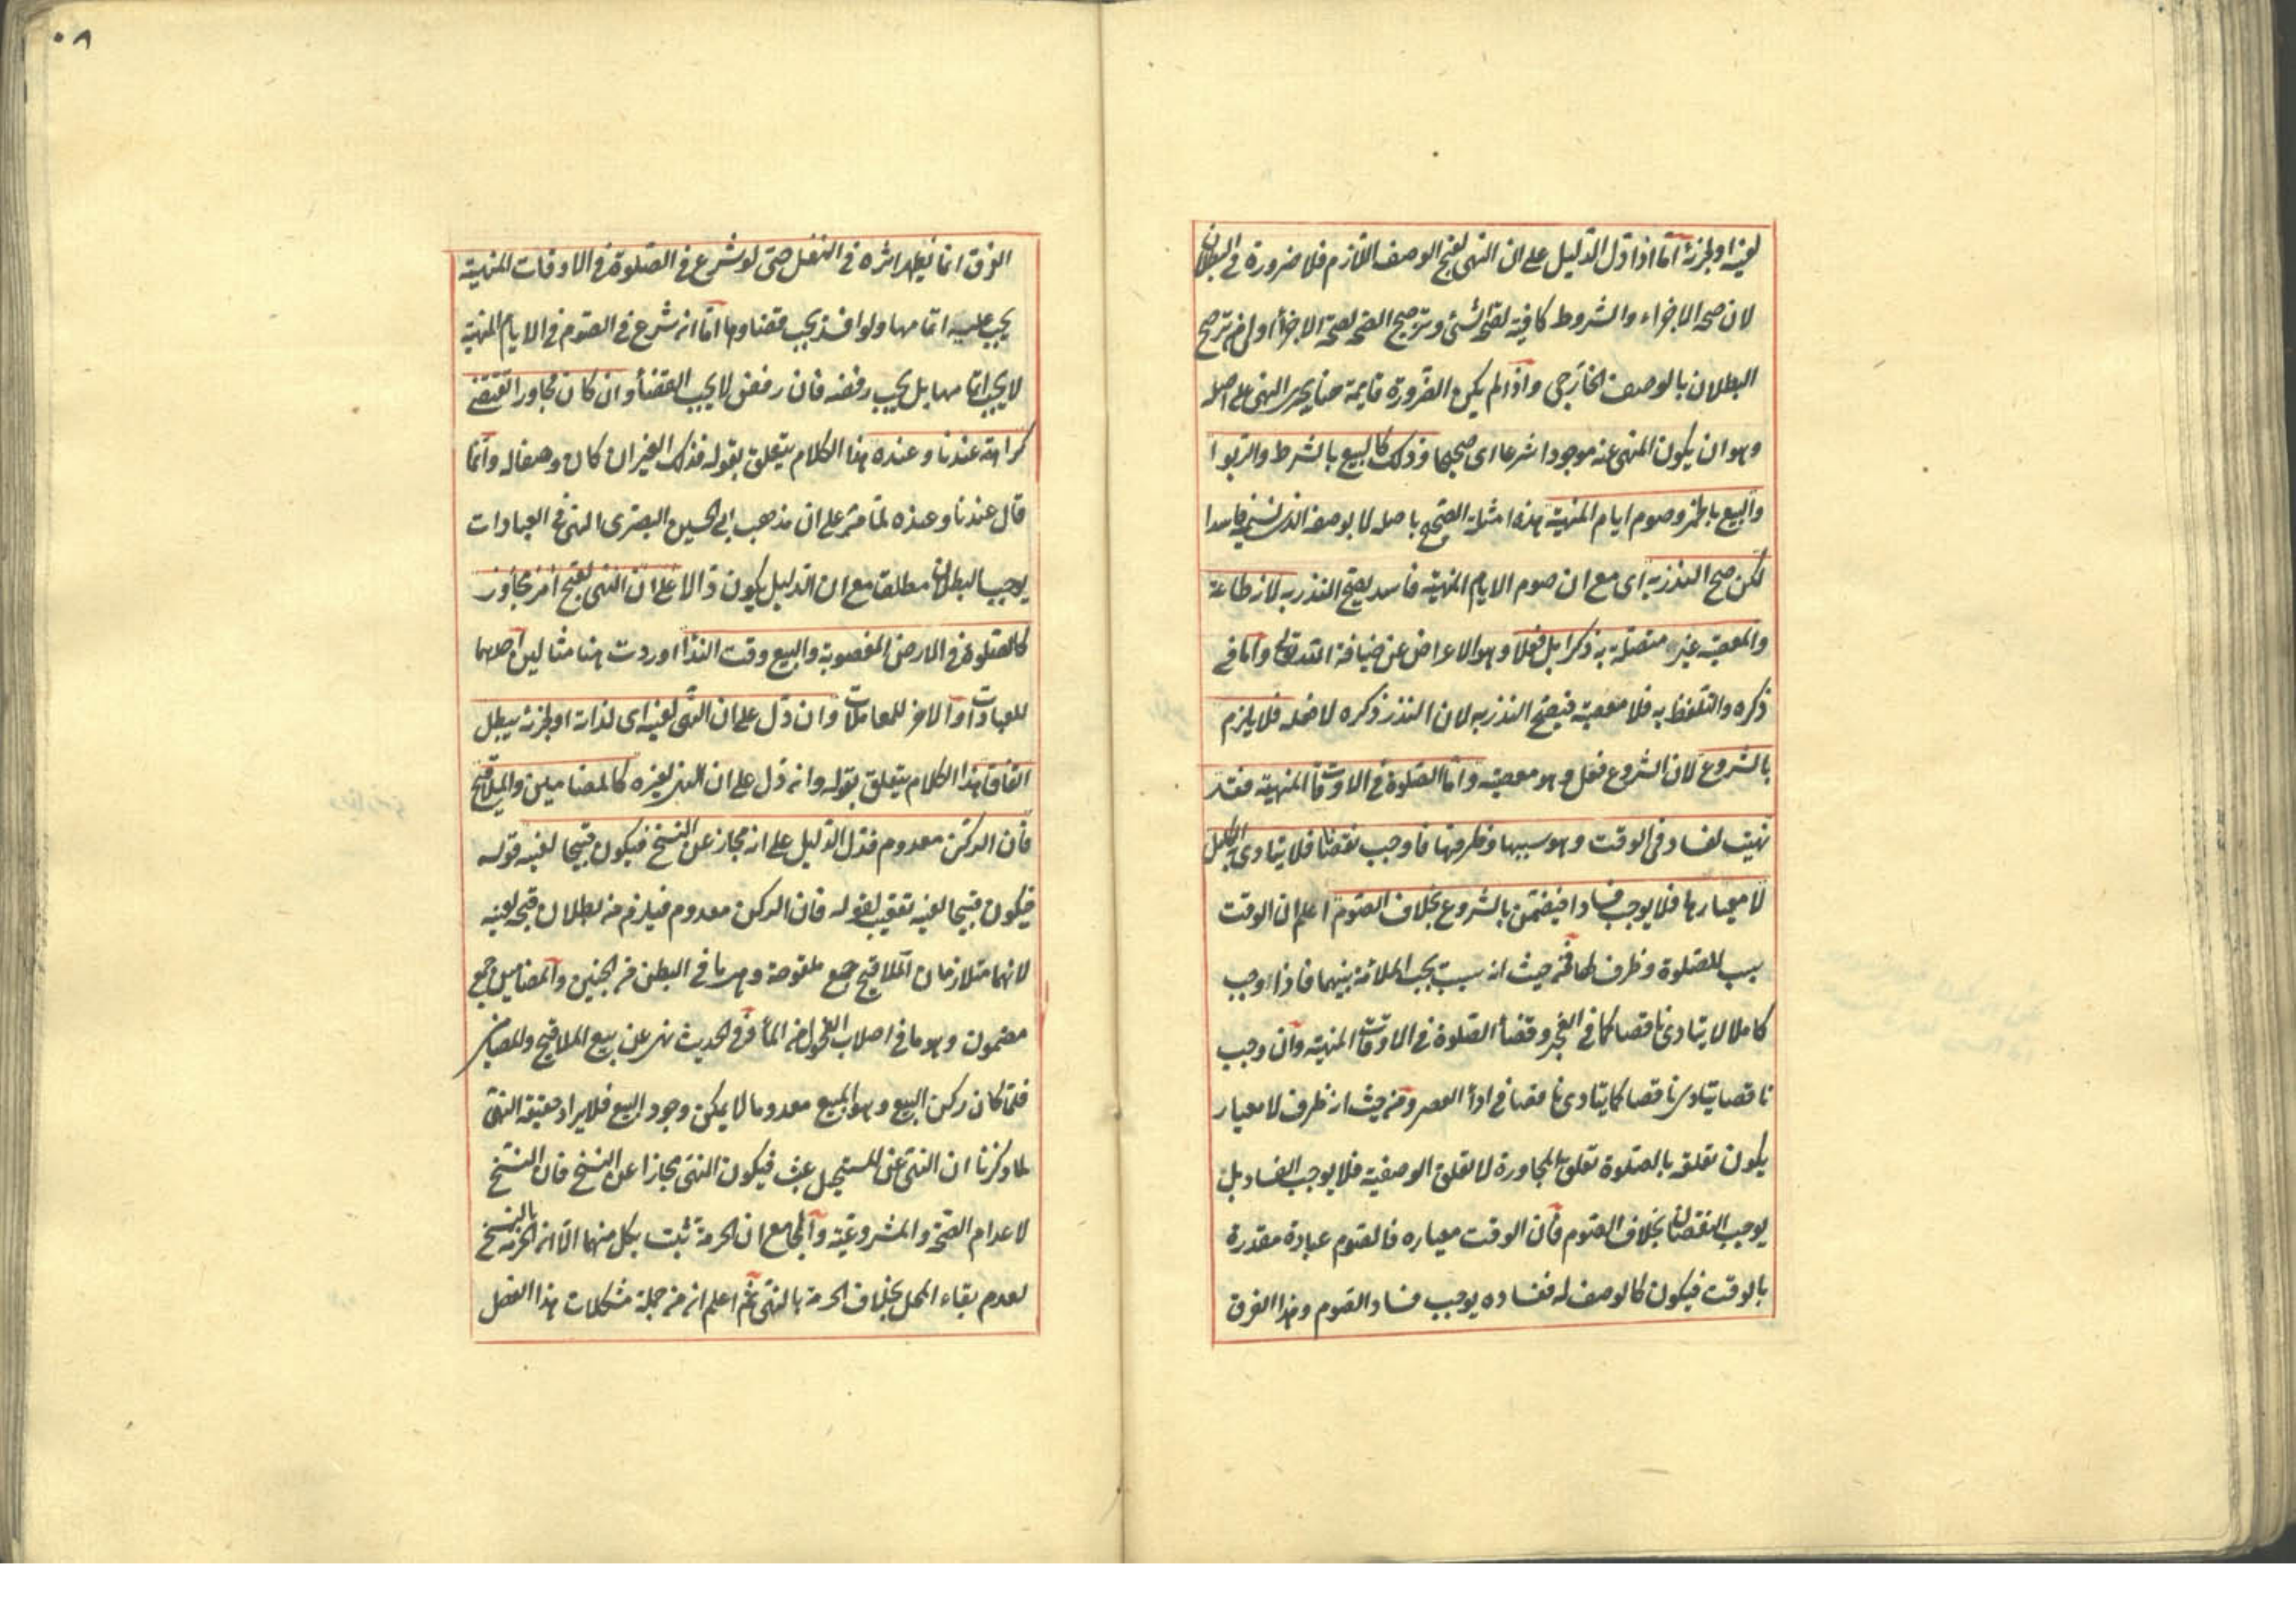 لعينه او لجزئه اما اذا دل الدليل على ان النهى لقبح الوصف اللازم فلا ضرورة فى البطلان
لان صحة الاجزاء والشروط كافية لصحة الشئ وترجيح الصحة لصحة الاجزاء اولى من ترجيح
البطلان بالوصف الخارجى واذا لم يكن الضرورة قايمة هنا يجرى النهى على اصله
وهو ان يكون المنهى عنه موجودا شرعا اى صحيحا وذلك كالبيع بالشرط والربوا
والبيع بالخمر وصوم ايام المنهية هذه امثلة الصحيح باصله لا بوصفه الذى نسميه فاسدا
لكن صح النذر به اى مع ان صوم الايام المنهية فاسد يصح النذر به لانه طاعة
والمعصية غير متصلة به ذكرا بل فعلا وهو الاعراض عن ضيافة الله تعالى واما فى
ذكره والتلفظ به فلا معصية فيصح النذر به لان النذر ذكره لا فعله فلا يلزم
بالشروع لان الشروع فعل وهو معصية واما الصلوة فى الاوقات المنهية فقد
نهيت لفساد فى الوقت وهو سببها وظرفها فاوجب نقصانا فلا يتادى به الكامل
لا معيارها فلا يوجب فسادا فيضمن بالشروع بخلاف الصوم اعلم ان الوقت
سبب للصلوة وظرف لها فمن حيث انه سبب يجب الملائمة بينهما فاذا وجب
كاملا لا يتادى ناقصا كما فى الفجر وقضاء الصلوة فى الاوقات المنهية وان وجب
ناقصا يتادى ناقصا كما يتادى ناقصا فى اداء العصر ومن حيث انه ظرف لا معيار
يكون تعلقه بالصلوة تعلق المجاورة لا تعلق الوصفية فلا يوجب الفساد بل
يوجب النقصان بخلاف الصوم فان الوقت معياره فالصوم عبادة مقدرة
بالوقت فيكون كالوصف له ففساده يوجب فساد الصوم وهذا الفرق
٨٠
الفرق انما يظهر اثره فى النفل حتى لو شرع فى الصلوة فى الاوقات المنهية
يجب عليه اتمامها ولو افسد يجب قضاوها اما ان شرع فى الصوم فى الايام المنهية
لا يجب اتمامها بل يجب رفضه فان رفض لا يجب القضاء وان كان مجاورا يقتضى
كراهته عندنا وعنده هذا الكلام يتعلق بقوله فذلك الغير ان كان وصفا له وانما
قال عندنا وعنده لما مر على ان مذهب ابى الحسين البصرى النهى فى العبادات
يوجب البطلان مطلقا مع ان الدليل يكون دالا على ان النهى لقبح امر مجاور
كالصلوة فى الارض المغصوبة والبيع وقت النداء اوردت هنا مثالين احدهما
للعبادات والاخر للمعاملات وان دل على ان النهى لعينه اى لذاته او لجزئه يبطل
اتفاقا هذا الكلام يتعلق بقوله وانه دل على ان النهى لغيره كالمضامين والملاقيح
فان الركن معدوم فدل الدليل على انه مجاز عن النسخ فيكون قبيحا لعينه قوله
فيكون قبيحا لعينه تعقيب لقوله فان الركن معدوم فيلزم من بطلان قبحه لعينه
لانهما متلازمان الملاقيح جمع ملقوحة وهى ما فى البطن من الجنين والمضامين جمع
مضمون وهو ما فى اصلاب الفحول من الماء وفى الحديث نهى عن بيع الملاقيح والمضامين
فلما كان ركن البيع وهو المبيع معدوما لا يمكن وجود البيع فلا يراد حقيقة النهى
لما ذكرنا ان النهى عن المستحيل عبث فيكون النهى مجازا عن النسخ فان النسخ
لاعدام الصحة والمشروعية والجامع ان الحرمة ثبت بكل منهما الا ان الحرمة بالنسخ
لعدم بقاء المحل بخلاف الحرمة بالنهى ثم اعلم انه من جملة مشكلات هذا الفصل